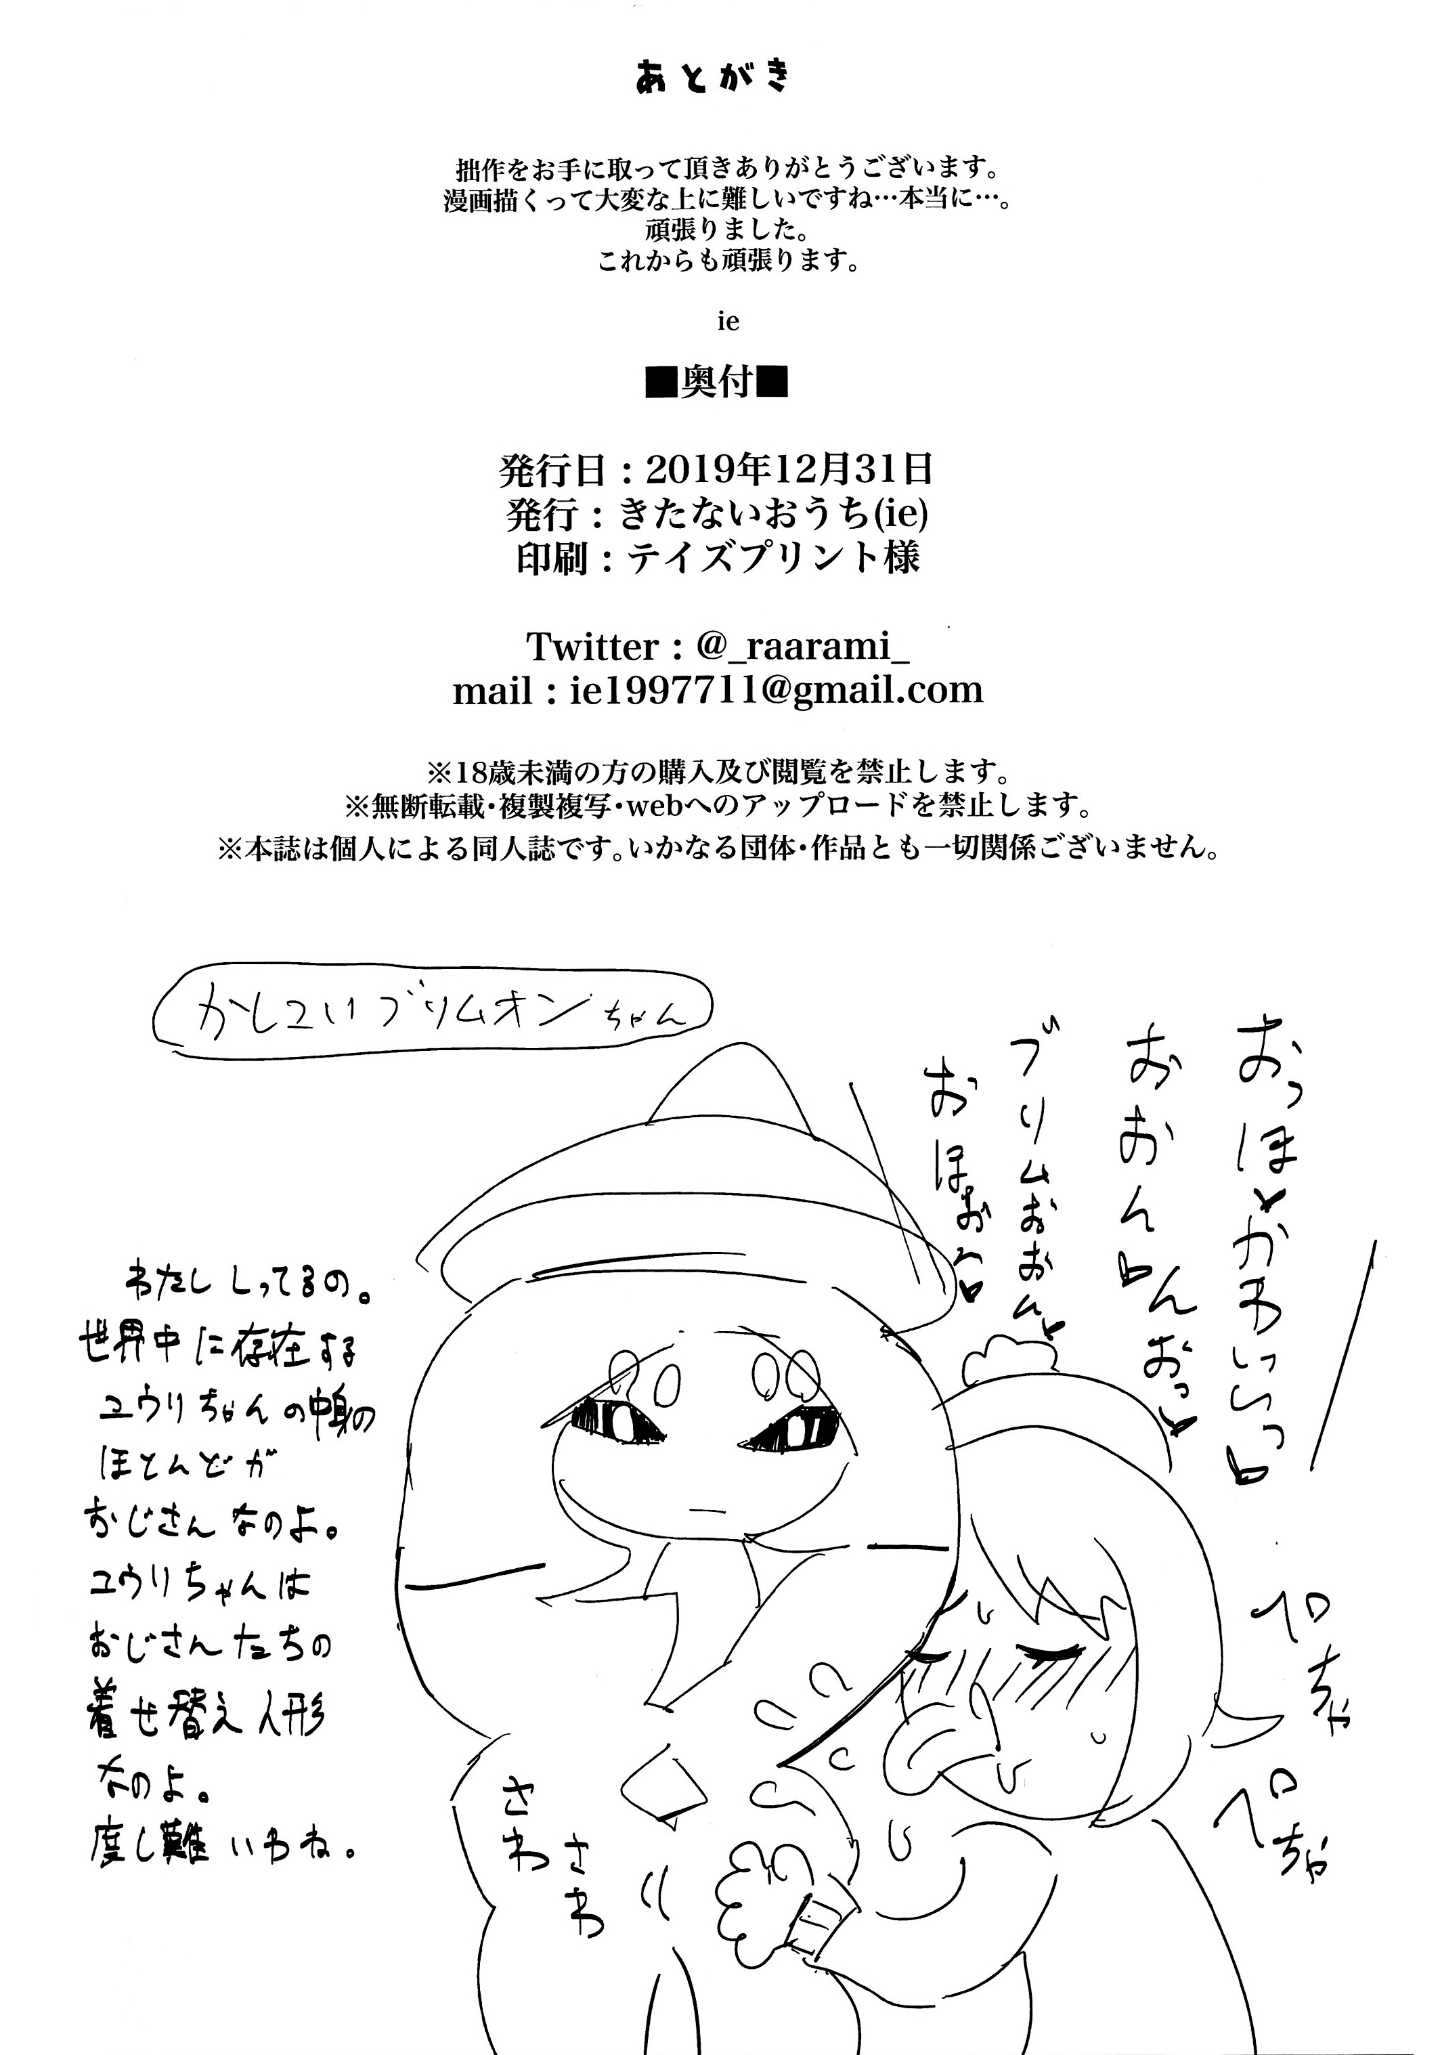 あとがき
拙作をお手に取って頂きありがとうございます。
漫画描くって大変な上に難しいですね…本当に…。
頑張りました。
これからも頑張ります。
ie
■奥付■
発行日：2019年12月31日
発行：きたないおうち(ie)
印刷：テイズプリント様
Twitter：@_raarami_
mail：ie1997711@gmail.com
※18歳未満の方の購入及び閲覧を禁止します。
※無断転載・複製複写・webへのアップロードを禁止します。
※本誌は個人による同人誌です。いかなる団体・作品とも一切関係ございません。
かしこいブリムオンちゃん
おっほ♥かわいいっ♥
おおん♥んおっ♥
ブリムおおん♥
おほおっ♥
わたししってるの。
世界中に存在する
ユウリちゃんの中身の
ほとんどが
おじさんなのよ。
ユウリちゃんは
おじさんたちの
着せ替え人形
なのよ。
度し難いわね。
さわ
さわ
ペロ
ちゃ
ペロ
ちゃ